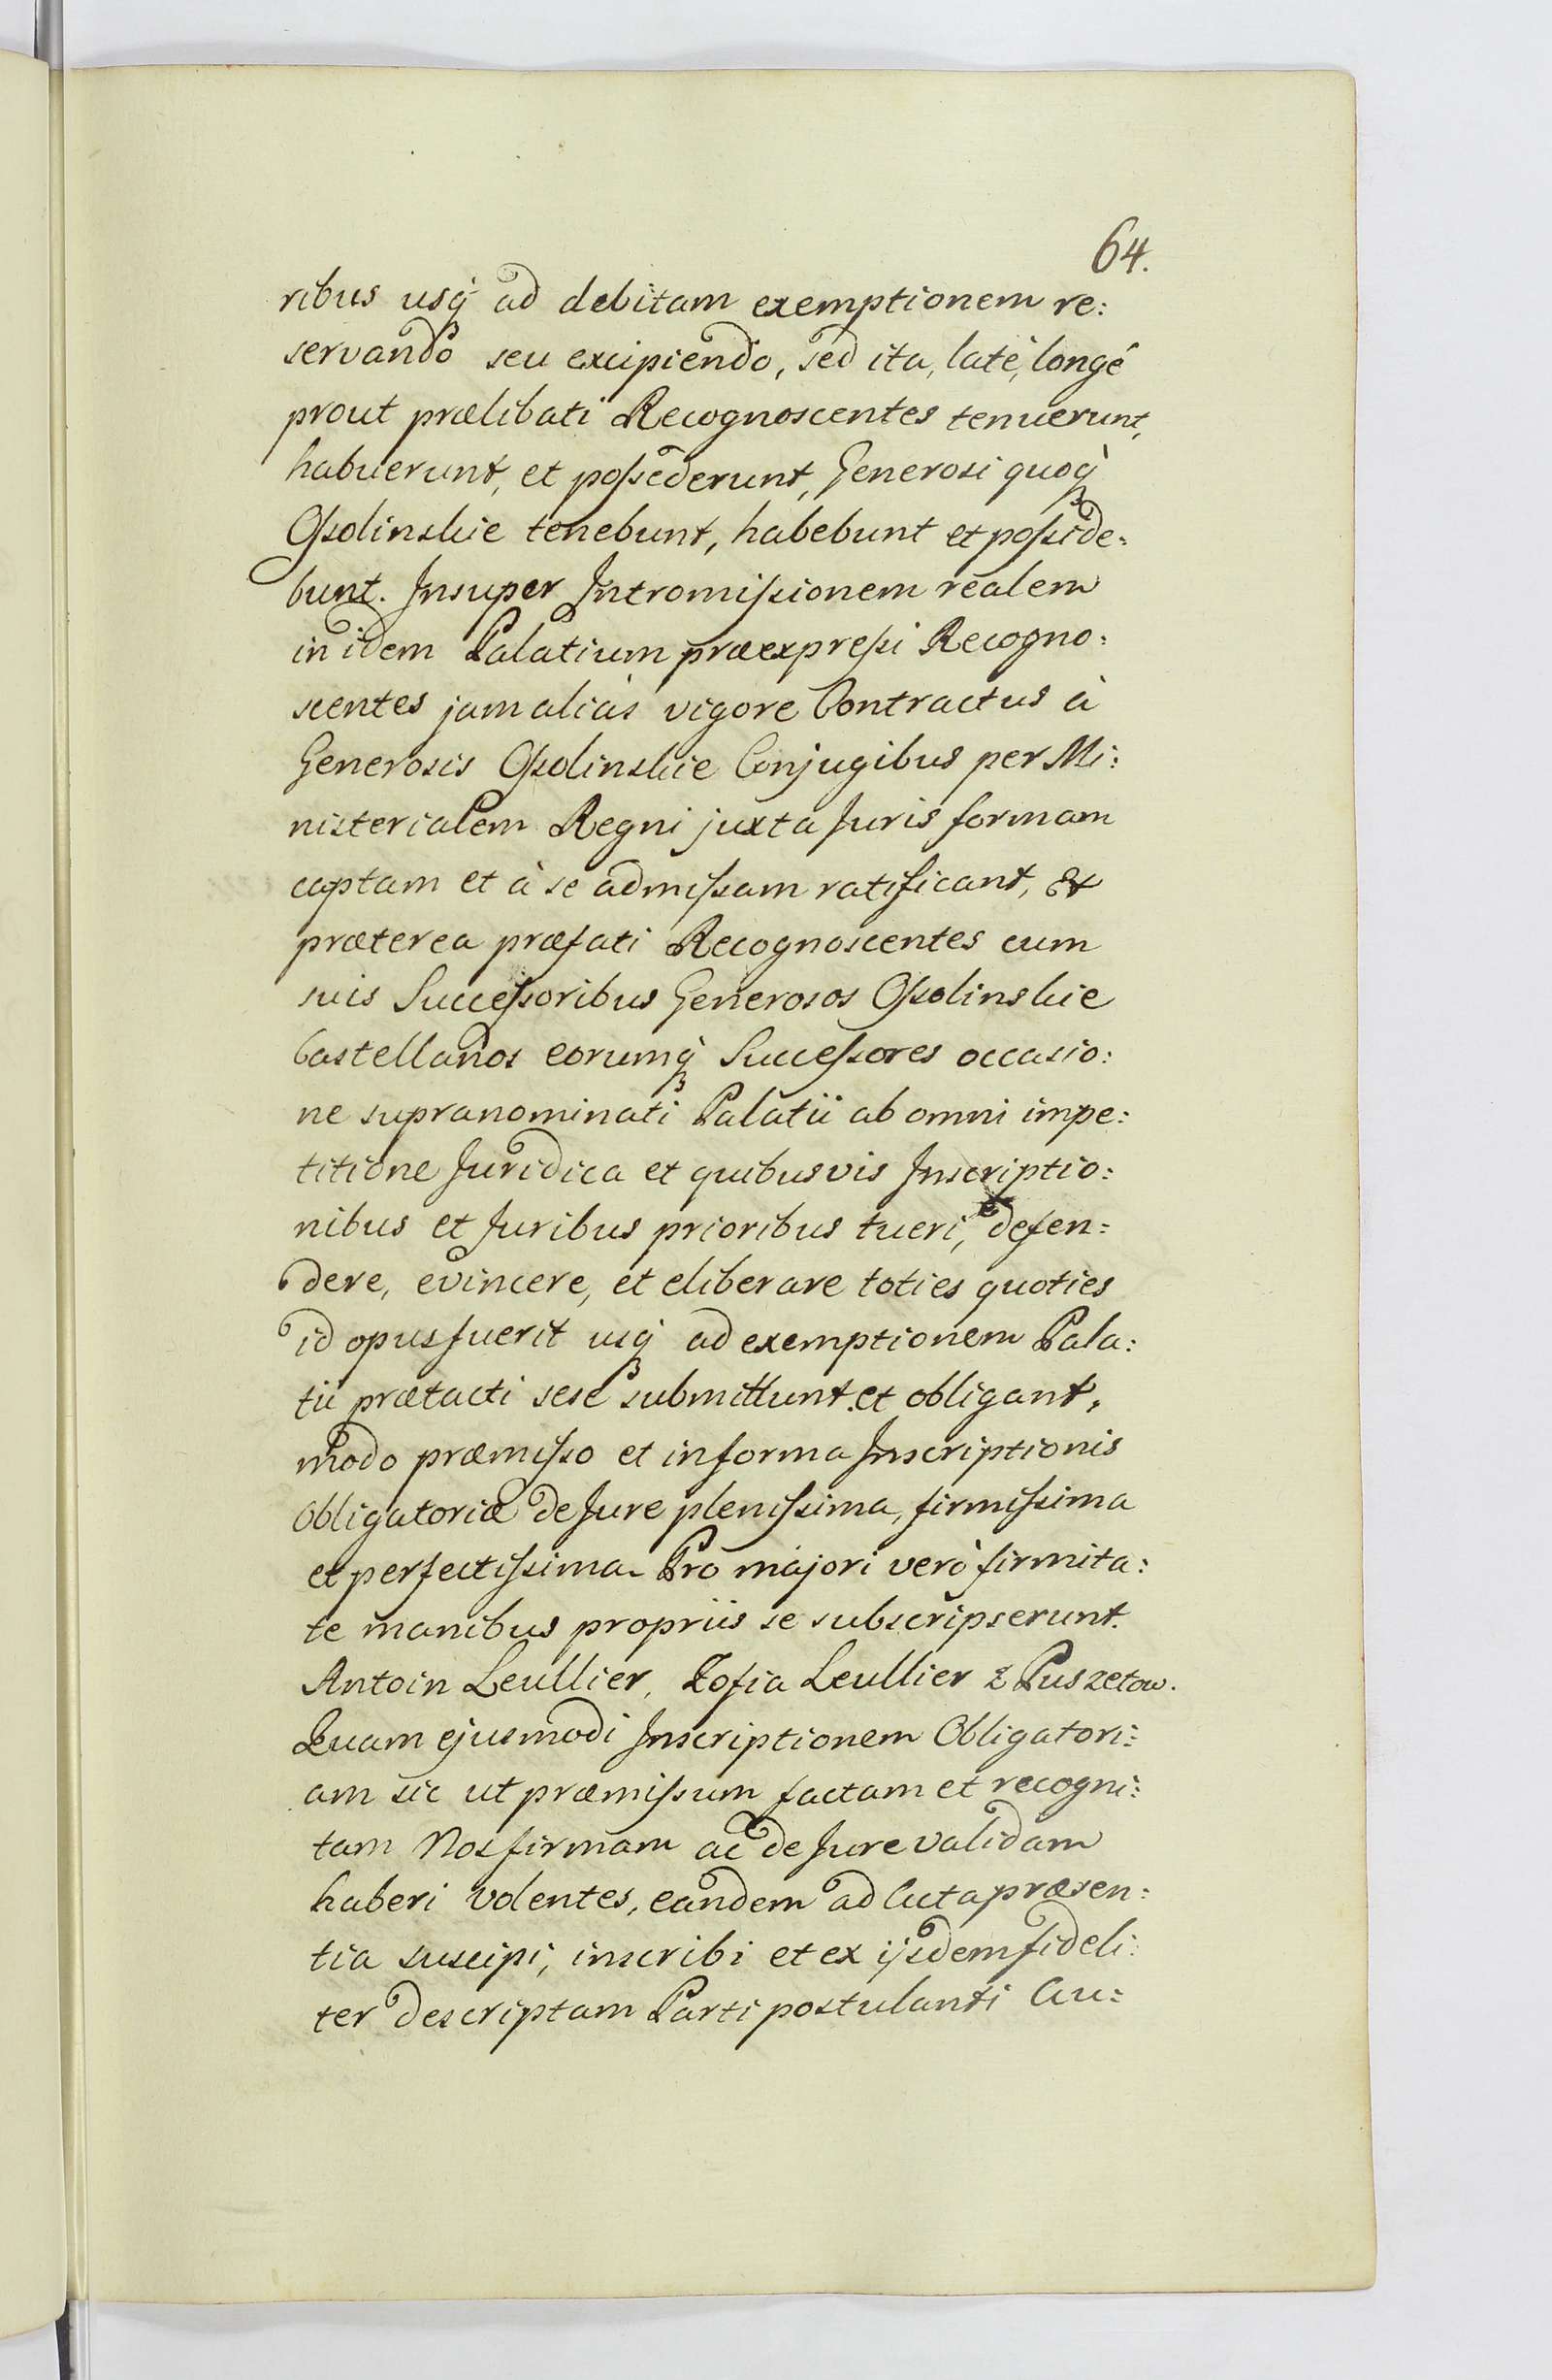 64.
ribus usq̀ ad debitam exemptionem re:
servando seu excipiendo, sed ita, latè, longé
prout prælibati Recognoscentes tenuerunt,
habuerunt, et poſsederunt, Generosi quoq̀
Oſsolinskie tenebunt, habebunt et poſside:
bunt. Insuper Intromiſsionem realem
in idem Palatium præexpreſsi Recogno:
scentes jam aliàs vigore Contractus à
Generosis Oſsolinskie Conjugibus per Mi:
nisterialem Regni juxta Juris formam
captam et à se admiſsam ratificant, &
præterea præfati Recognoscentes cum
suis Succeſsoribus Generosos Oſsolinskie
Castellanos eorumq̀ Succeſsores occasio:
ne supranominati Palatii ab omni impe:
titione Juridica et quibusvis Inscriptio:
nibus et Juribus prioribus tueri, defen:
dere, evincere, et eliberare toties quoties
id opus fuerit usq̀ ad exemptionem Pala:
tii prætacti sese submittunt et obligant,
modo præmiſso et in forma Inscriptionis
Obligatoriæ de Jure pleniſsima, firmiſsima
et perfectiſsima. Pro majori verò firmita:
te manibus propriis se subscripserunt.
Antoin Leullier, Zofia Leullier z Puszetow.
Quam ejusmodi Inscriptionem Obligatori:
am sic ut præmiſsum factam et recogni:
tam Nos firmam ac de Jure validam
haberi volentes, eandem ad Acta præsen:
tia suscipi, inscribi et ex ijsdem fideli:
ter descriptam Parti postulanti Au: